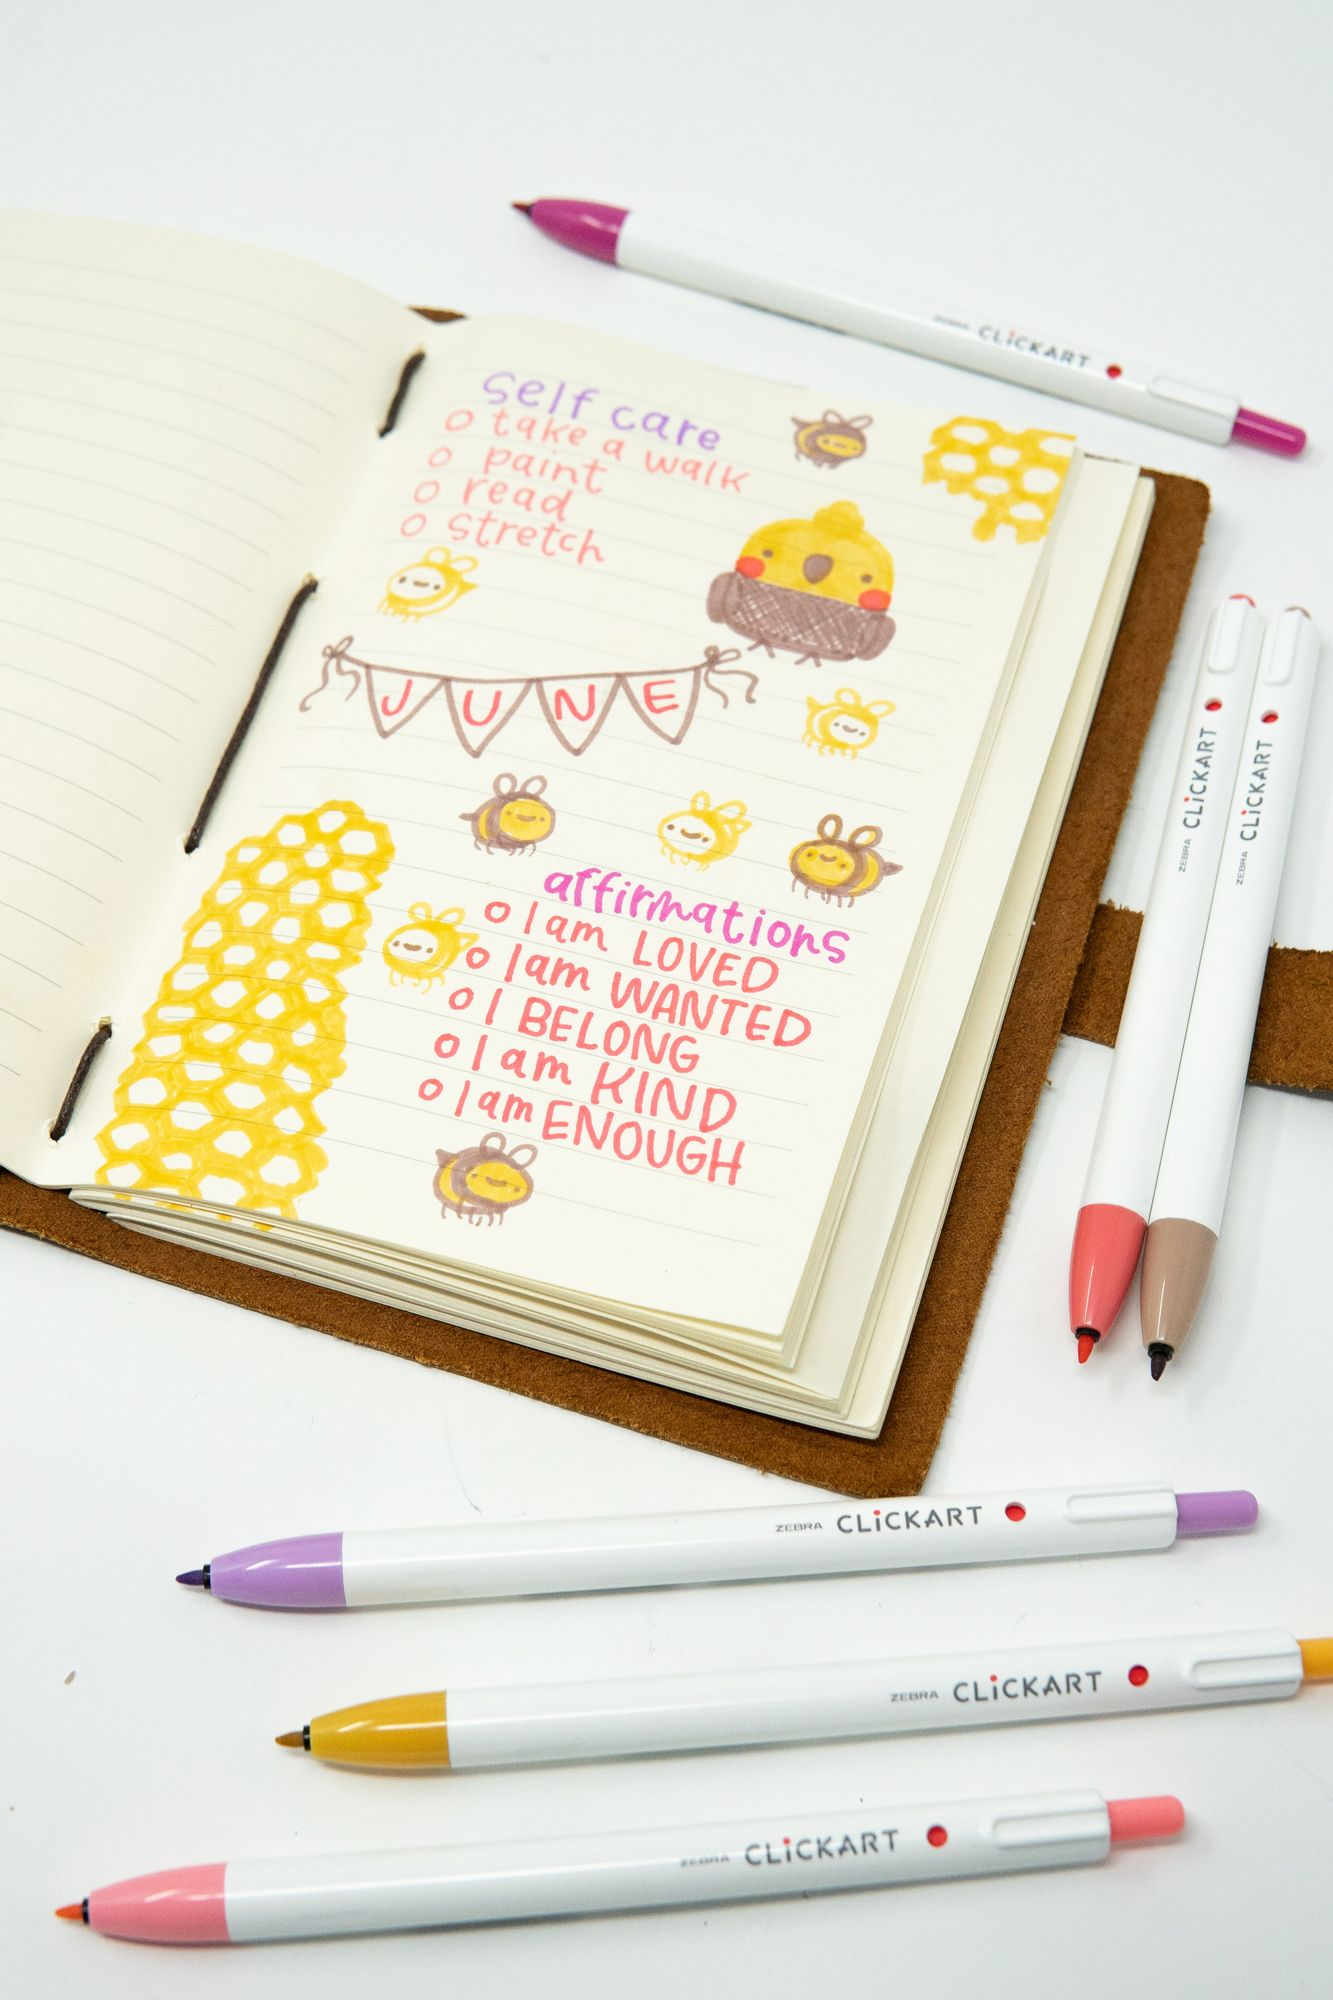 CLiCKART
self care
take a walk
paint
read
stretch
JUNE
affirmations
I am LOVED
I am WANTED
I BELONG
I am KIND
I am ENOUGH
ZEBRA CLiCKART
ZEBRA CLiCKART
ZEBRA CLiCKART
ZEBRA CLiCKART
ZEBRA CLiCKART